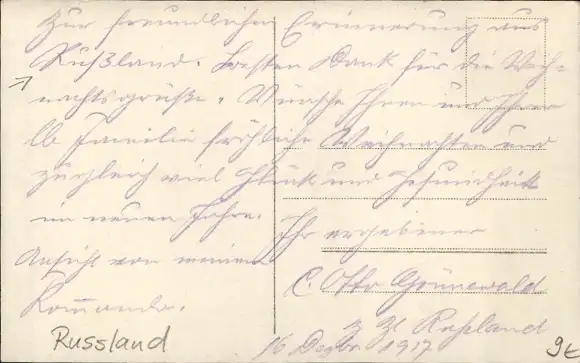 Zur freundlichen Erinnerung aus
Rußland. Besten Dank für die Weih-
nachtsgrüße. Wünsche Ihnen und Ihrer
lb Familie fröhliche Weihnachten und
zugleich viel Glück und Gesundheit
im neuen Jahre. Ihr ergebener
Ansicht von meinem
Kommando. C. Otto Grünewald
z Zt Rußland
16 Dezbr. 1917
Russland
9€